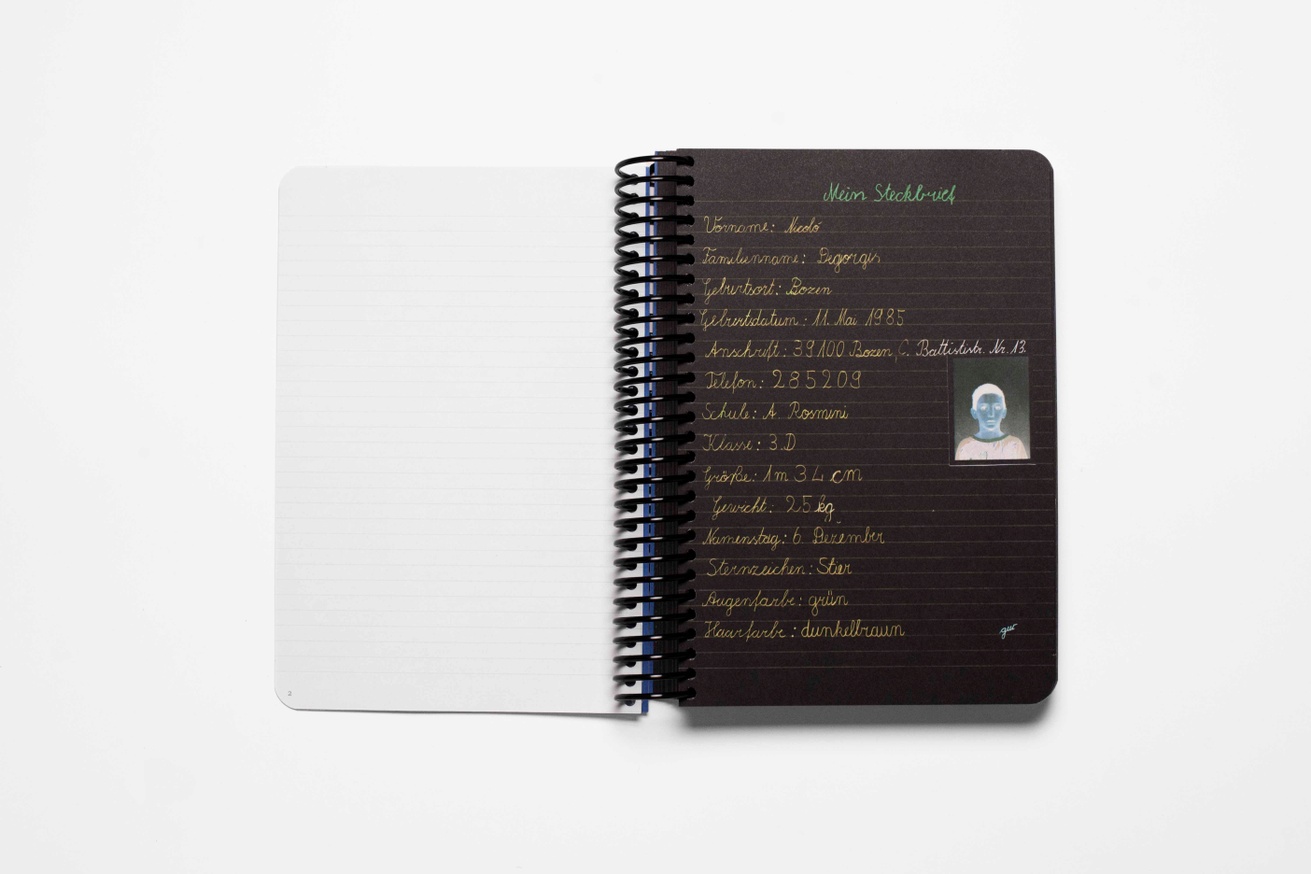 Mein Steckbrief
Vorname: Nicoló
Familienname: Degorgis
Geburtsort: Bozen
Geburtsdatum: 11. Mai 1985
Anschrift: 39100 Bozen, C. Battististr. Nr. 13.
Telefon: 285209
Schule: A. Rosmini
Klasse: 3.D
Größe: 1m 34 cm
Gewicht: 25 kg
Namenstag: 6. Dezember
Sternzeichen: Stier
Augenfarbe: grün
Haarfarbe: dunkelbraun
gut
2